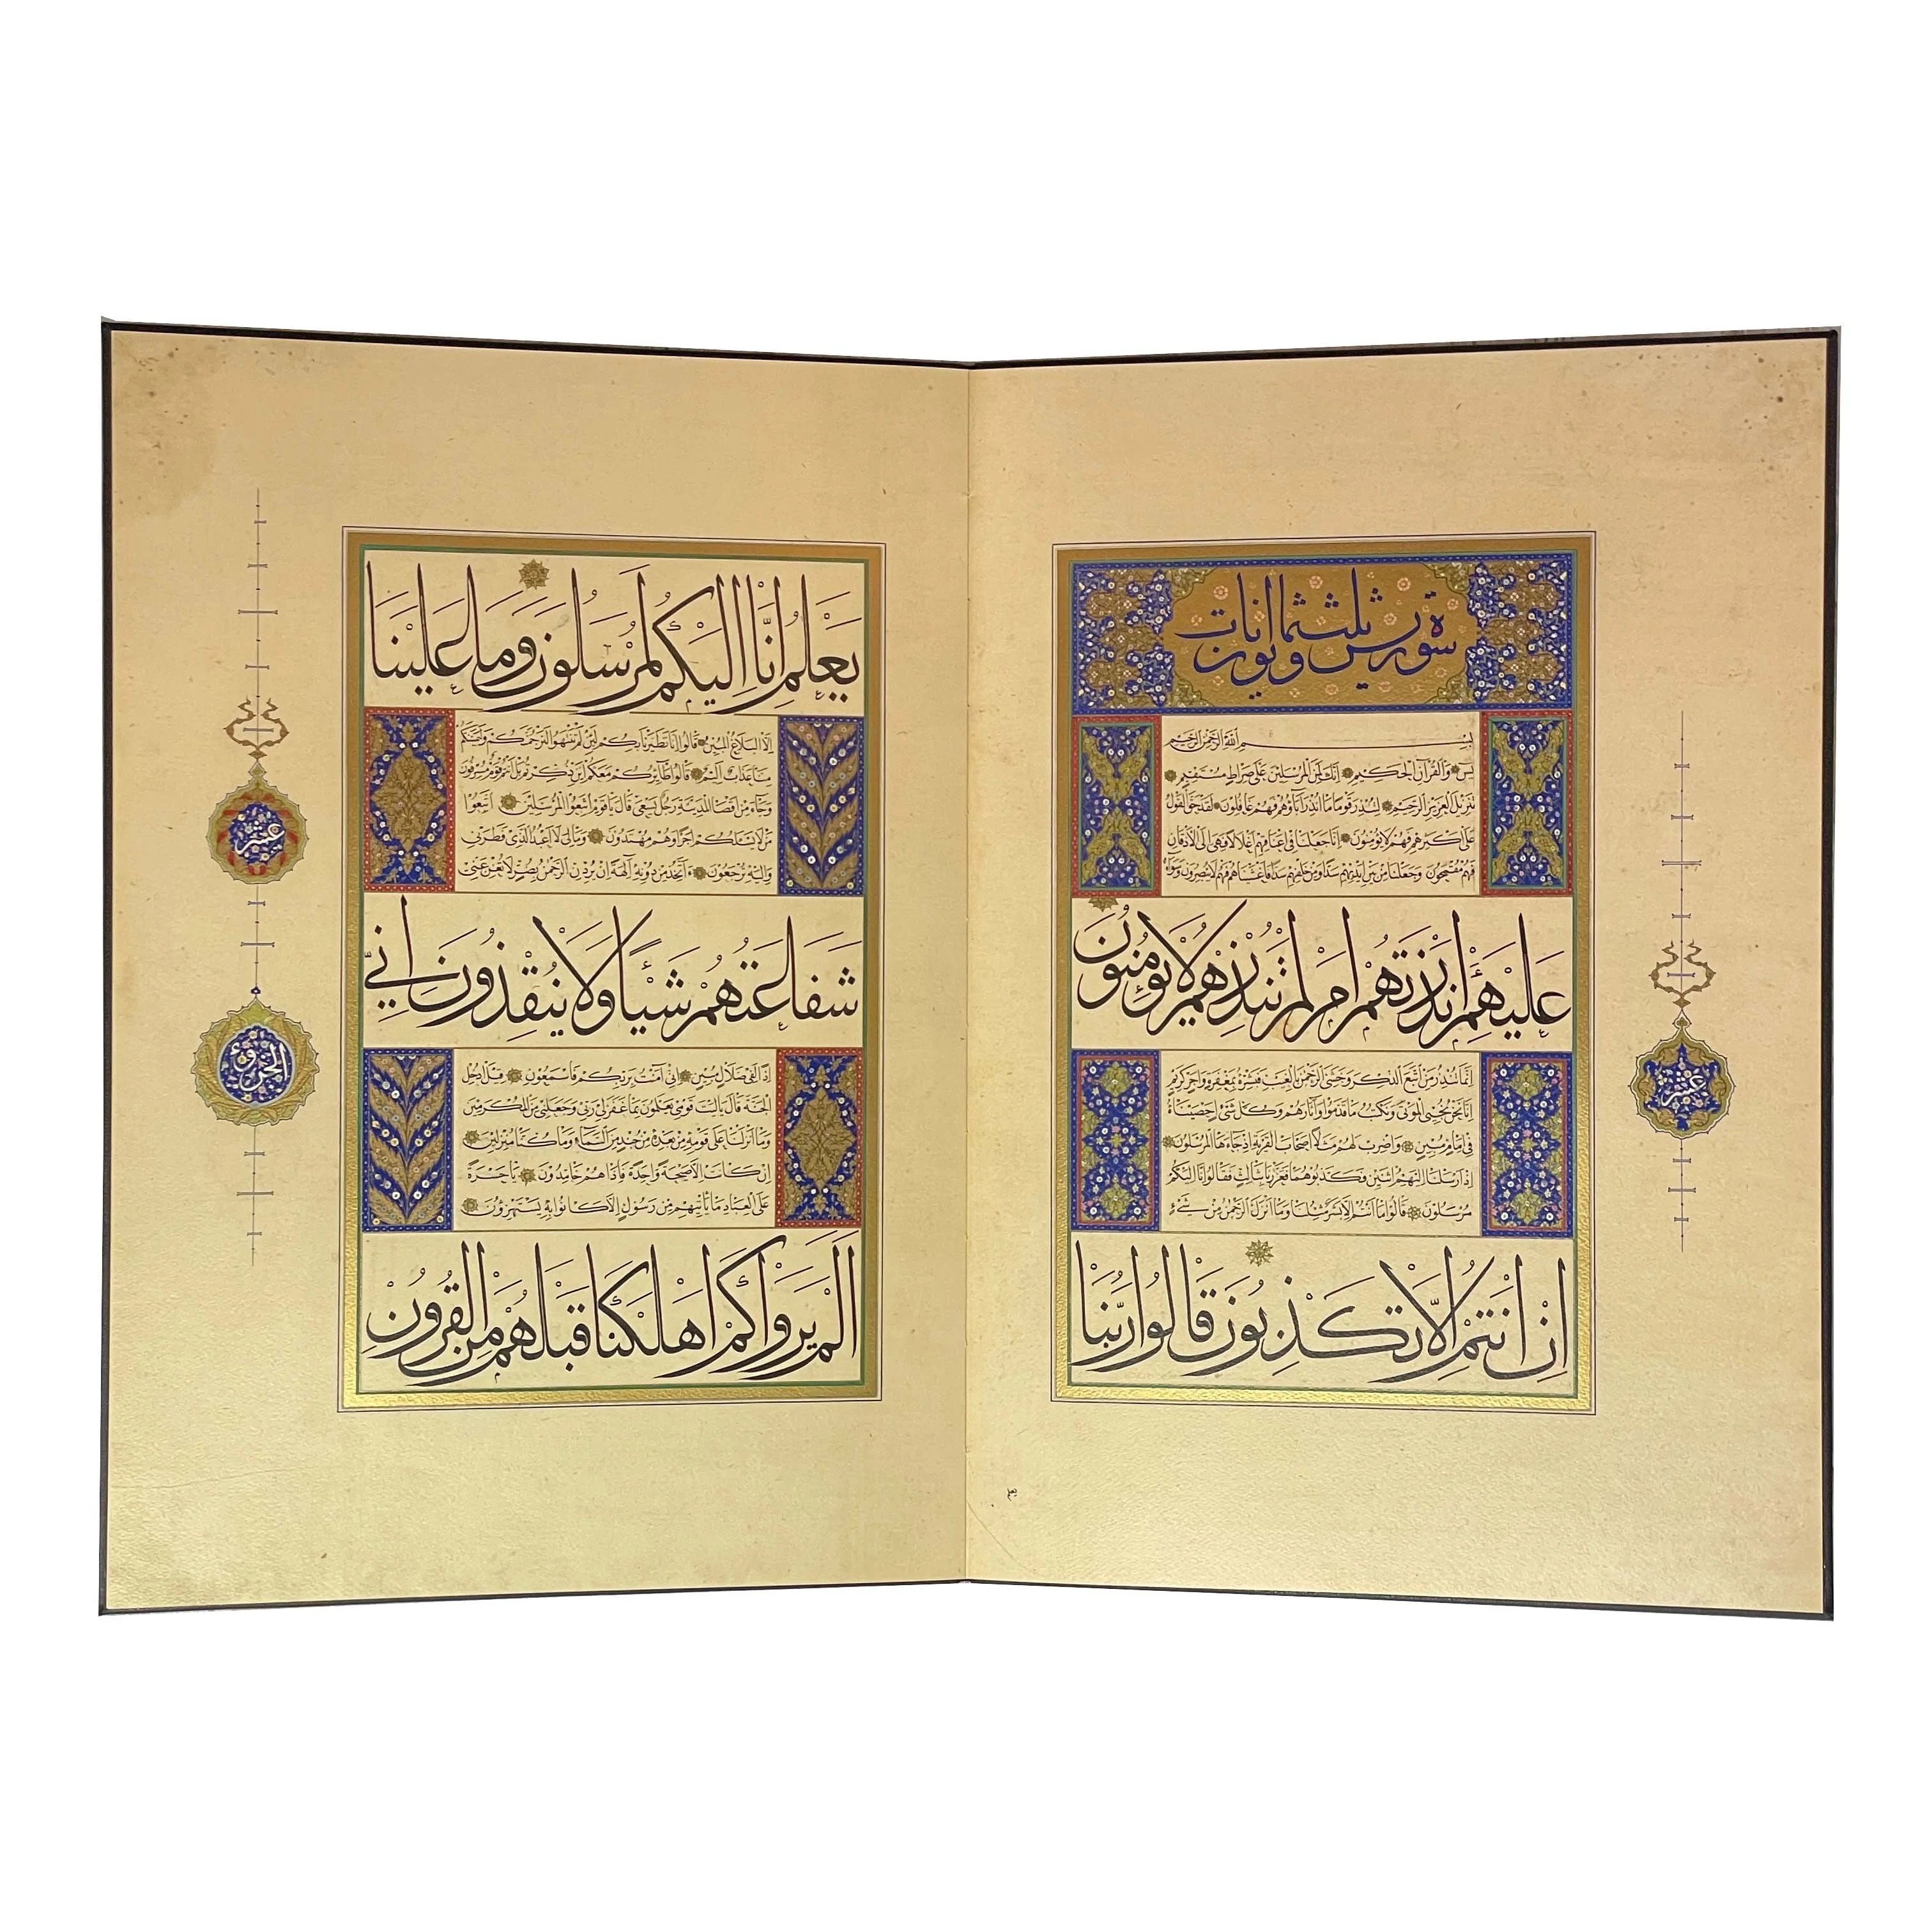 سورة يس ثلث وثمانون ايات
بسم الله الرحمن الرحيم
يس والقرآن الحكيم انك لمن المرسلين على صراط مستقيم
تنزيل العزيز الرحيم لتنذر قوما ما انذر آباؤهم فهم غافلون لقد حق القول
على اكثرهم فهم لا يؤمنون انا جعلنا في اعناقهم اغلالا فهي الى الاذقان
فهم مقمحون وجعلنا من بين ايديهم سدا ومن خلفهم سدا فاغشيناهم فهم لا يبصرون وسواء
عَلَيْهِمْ ءَاَنْذَرْتَهُمْ اَمْ لَمْ تُنْذِرْهُمْ لَا يُؤْمِنُونَ
انما تنذر من اتبع الذكر وخشي الرحمن بالغيب فبشره بمغفرة واجر كريم
انا نحن نحيي الموتى ونكتب ما قدموا وآثارهم وكل شيء احصيناه
في امام مبين واضرب لهم مثلا اصحاب القرية اذ جاءها المرسلون
اذ ارسلنا اليهم اثنين فكذبوهما فعززنا بثالث فقالوا انا اليكم
مرسلون قالوا ما انتم الا بشر مثلنا وما انزل الرحمن من شيء
اِنْ اَنْتُمْ اِلَّا تَكْذِبُونَ قَالُوا رَبُّنَا
عشر
يعلم
يَعْلَمُ اِنَّا اِلَيْكُمْ لَمُرْسَلُونَ وَمَا عَلَيْنَا
الا البلاغ المبين قالوا انا تطيرنا بكم لئن لم تنتهوا لنرجمنكم وليمسنكم
منا عذاب اليم قالوا طائركم معكم ائن ذكرتم بل انتم قوم مسرفون
وجاء من اقصا المدينة رجل يسعى قال يا قوم اتبعوا المرسلين اتبعوا
من لا يسئلكم اجرا وهم مهتدون وما لي لا اعبد الذي فطرني
واليه ترجعون ءاتخذ من دونه آلهة ان يردن الرحمن بضر لا تغن عني
شَفَاعَتُهُمْ شَيْئًا وَلَا يُنْقِذُونِ اِنِّي
اذا لفي ضلال مبين اني آمنت بربكم فاسمعون قيل ادخل
الجنة قال يا ليت قومي يعلمون بما غفر لي ربي وجعلني من المكرمين
وما انزلنا على قومه من بعده من جند من السماء وما كنا منزلين
ان كانت الا صيحة واحدة فاذا هم خامدون يا حسرة
على العباد ما يأتيهم من رسول الا كانوا به يستهزؤن
اَلَمْ يَرَوْا كَمْ اَهْلَكْنَا قَبْلَهُمْ مِنَ الْقُرُونِ
عشر
الجزؤ